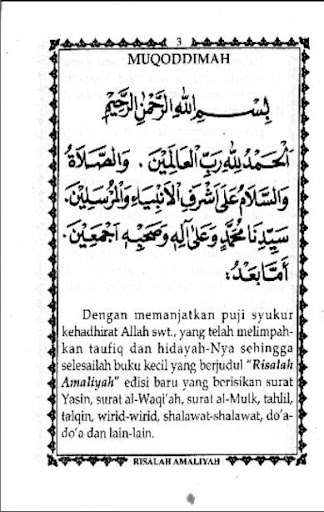 3
MUQODDIMAH
بِسْــــمِ اللهِ الرَّحْمٰنِ الرَّحِيْمِ
اَلْحَمْدُ لِلّٰهِ رَبِّ الْعَالَمِيْنَ . وَالصَّلَاةُ
وَالسَّلَامُ عَلَى اَشْرَفِ الْاَنْبِيَاءِ وَالْمُرْسَلِيْنَ.
سَيِّدِنَا مُحَمَّدٍ وَعَلَى اٰلِهِ وَصَحْبِهِ اَجْمَعِيْنَ.
اَمَّا بَعْدُ:
Dengan memanjatkan puji syukur
kehadhirat Allah swt., yang telah melimpah-
kan taufiq dan hidayah-Nya sehingga
selesailah buku kecil yang berjudul "Risalah
Amaliyah" edisi baru yang berisikan surat
Yasin, surat al-Waqi'ah, surat al-Mulk, tahlil,
talqin, wirid-wirid, shalawat-shalawat, do'a-
do'a dan lain-lain.
RISALAH AMALIYAH